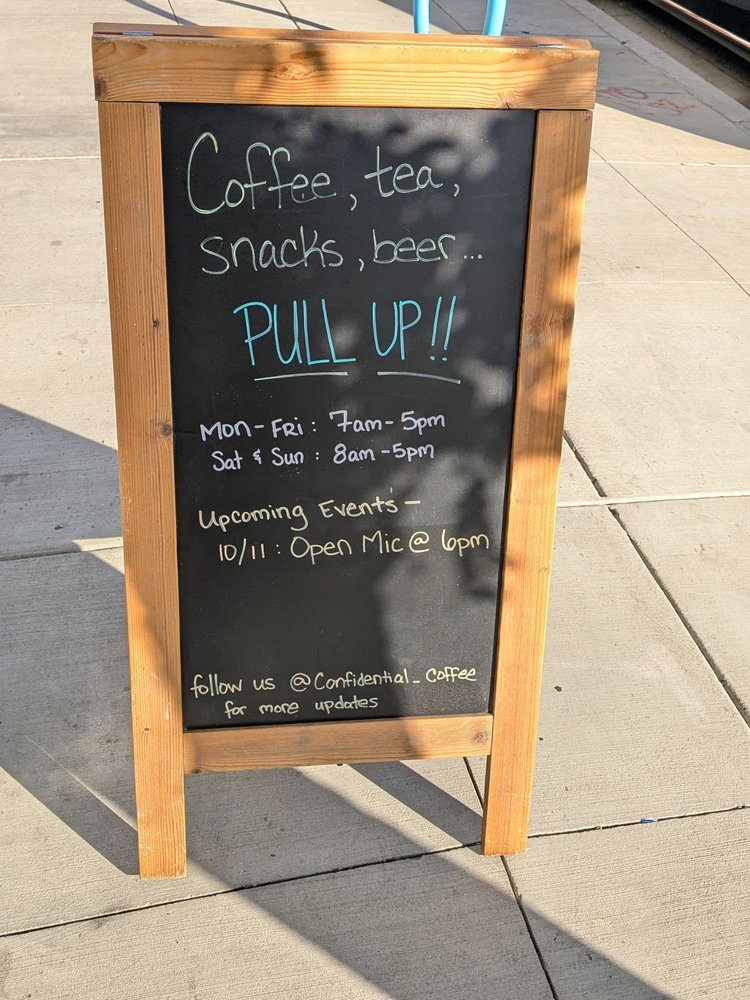 Coffee, tea,
snacks, beer...
PULL UP!!
MON - FRI : 7am - 5pm
Sat & Sun : 8am - 5pm
Upcoming Event's -
10/11 : Open Mic @ 6pm
follow us @Confidential_Coffee
for more updates